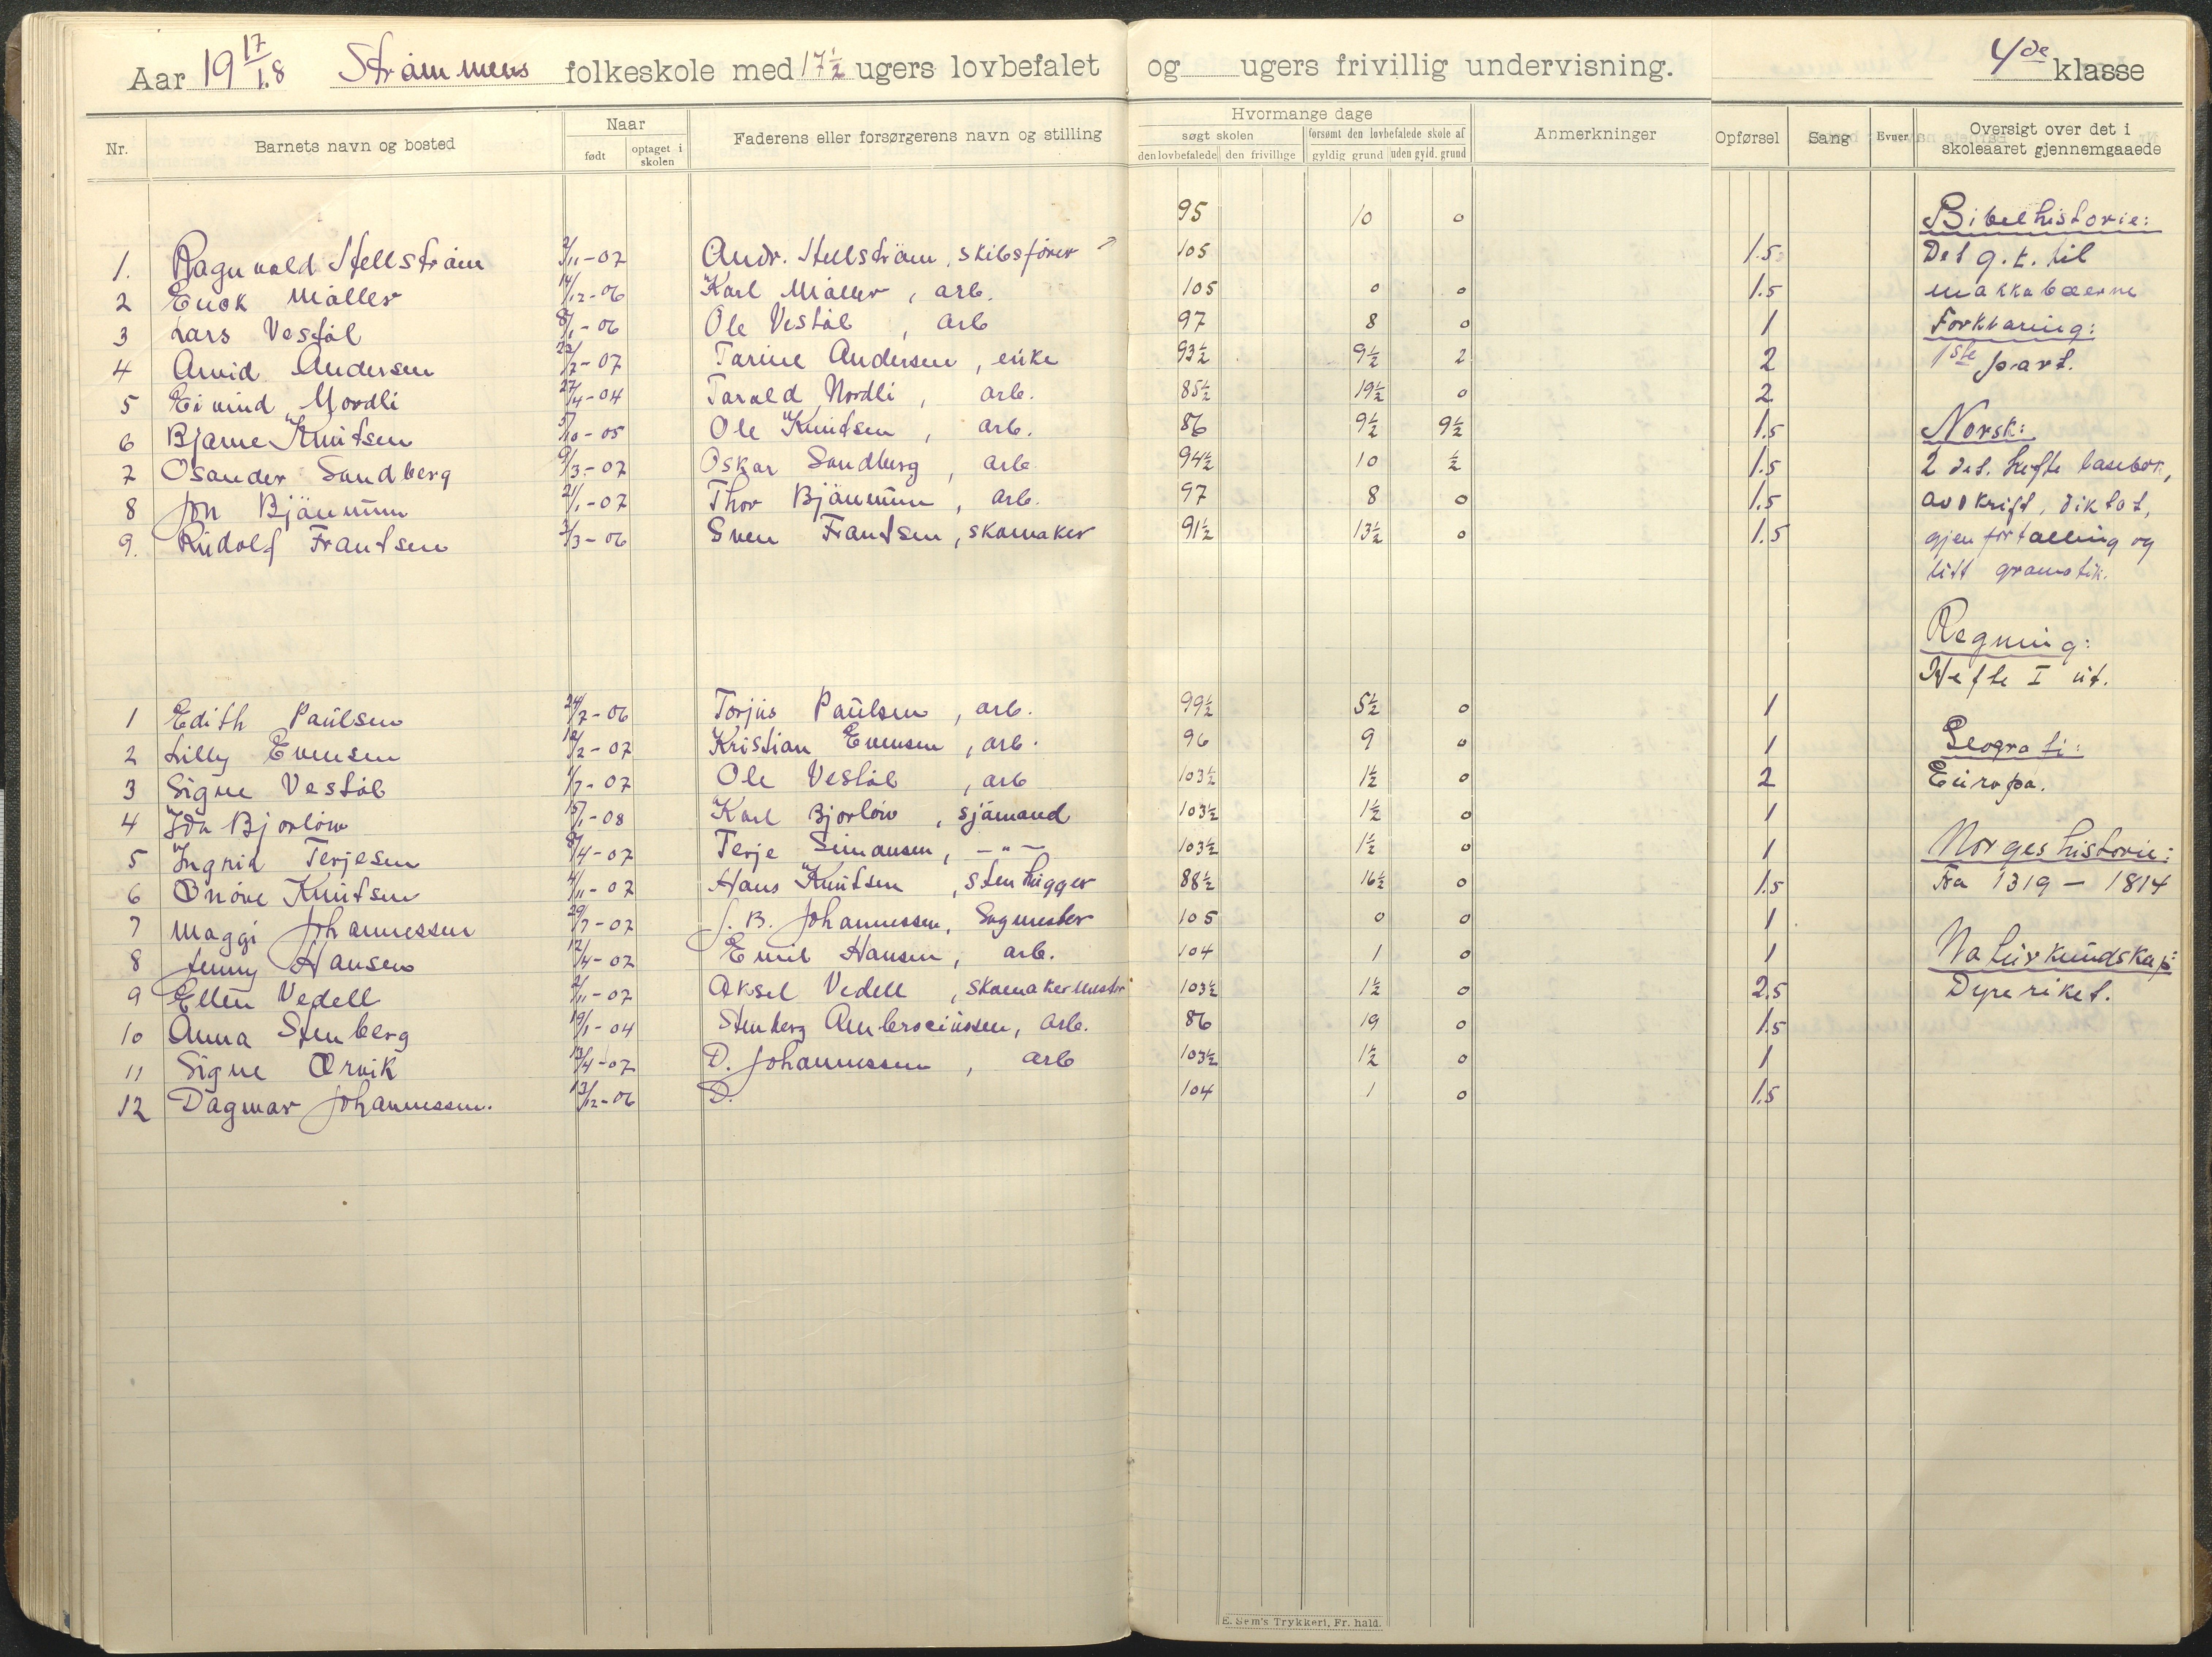 Aar 19 17/18 Strømmens folkeskole med 17½ ugers lovbefalet og ugers frivillig undervisning. 4de klasse
Nr. Barnets navn og bosted Naar født optaget i skolen Faderens eller forsørgerens navn og stilling Hvormange dage søgt skolen den lovbefalede den frivillige forsømt den lovbefalede skole af gyldig grund uden gyld. grund Anmerkninger Opførsel Sang Evner Oversigt over det i skoleaaret gjennemgaaede
95 10 0 Bibelhistorie:
1. Ragnvald Hellstrøm 2/11-07 Andr. Hellstrøm, skibsfører 105 1.5 Det g.t. til
2 Enok Møller 14/12-06 Karl Møller, arb. 105 0 0 1.5 makkabæerne
3 Lars Vestøl 8/1-06 Ole Vestøl, arb 97 8 0 1 Forklaring:
4 Arvid Andersen 23/7-07 Tarine Andersen, enke 93½ 9½ 2 2 1ste part.
5 Eivind Nordli 27/4-04 Tarald Nordli, arb. 85½ 19½ 0 2
6 Bjarne Knutsen 5/10-05 Ole Knutsen, arb. 86 9½ 9½ 1.5 Norsk:
7 Osander Sandberg 9/3-07 Oskar Sandberg, arb 94½ 10 ½ 1.5 2 det. hefte læsebok,
8 Jon Bjønnum 21/1-07 Thor Bjønnum, arb. 97 8 0 1.5 avskrift, diktat,
9. Rudolf Frantsen 2/3-06 Sven Frantsen, skomaker 91½ 13½ 0 1.5 gjenfortælling og
litt gramatik.
Regning:
Hefte I ut.
1 Edith Paulsen 24/7-06 Torjus Paulsen, arb. 99½ 5½ 0 1
2 Lilly Evensen 12/2-07 Kristian Evensen, arb. 96 9 0 1 Geografi:
3 Signe Vestøl 1/7-07 Ole Vestøl, arb 103½ 1½ 0 2 Europa.
4 Ida Bjorløw 15/1-08 Karl Bjorløw, sjømand 103½ 1½ 0 1
5 Ingrid Terjesen 8/4-07 Terje Simonsen, —"— 103½ 1½ 0 1 Norgeshistorie:
6 Ønøve Knutsen 4/11-07 Hans Knutsen, stenhugger 88½ 16½ 0 1.5 Fra 1319 - 1814
7 Maggi Johannessen 29/7-07 J. B. Johannessen, Sagmester 105 0 0 1
8 Jenny Hansen 12/4-07 Emil Hansen, arb. 104 1 0 1 Naturkundskap:
9 Ellen Vedell 2/11-07 Aksel Vedell, skomakermester 103½ 1½ 0 2.5 Dyreriket.
10 Anna Stenberg 19/1-04 Stenberg Ambrociussen, arb. 86 19 0 1.5
11 Signe Ørvik 13/4-07 D. Johannessen, arb 103½ 1½ 0 1
12 Dagmar Johannessen. 13/12-06 D. 104 1 0 1.5
E. Sem's Trykkeri, Fr. hald.